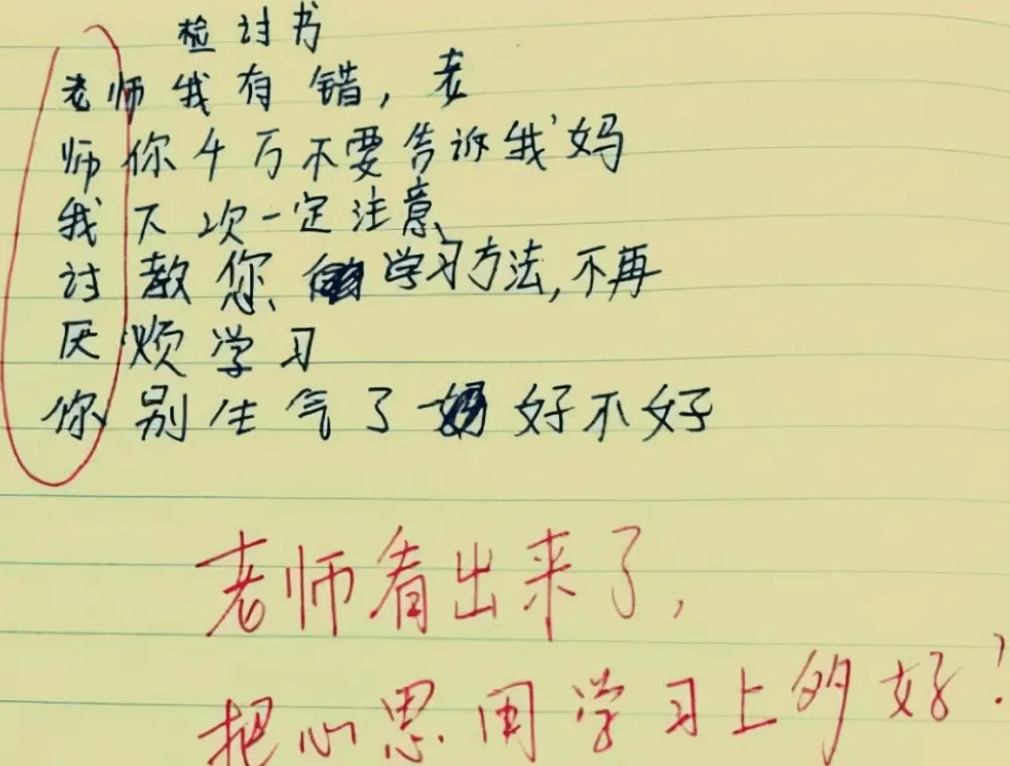 检讨书
老师我有错，老
师你千万不要告诉我妈
我下次一定注意
讨教您学习方法，不再
厌烦学习
你别生气了好不好
老师看出来了，
把心思用学习上多好！